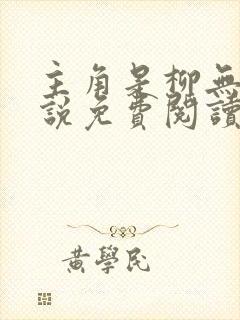 主角是柳無
說免費閱讀
黃學民